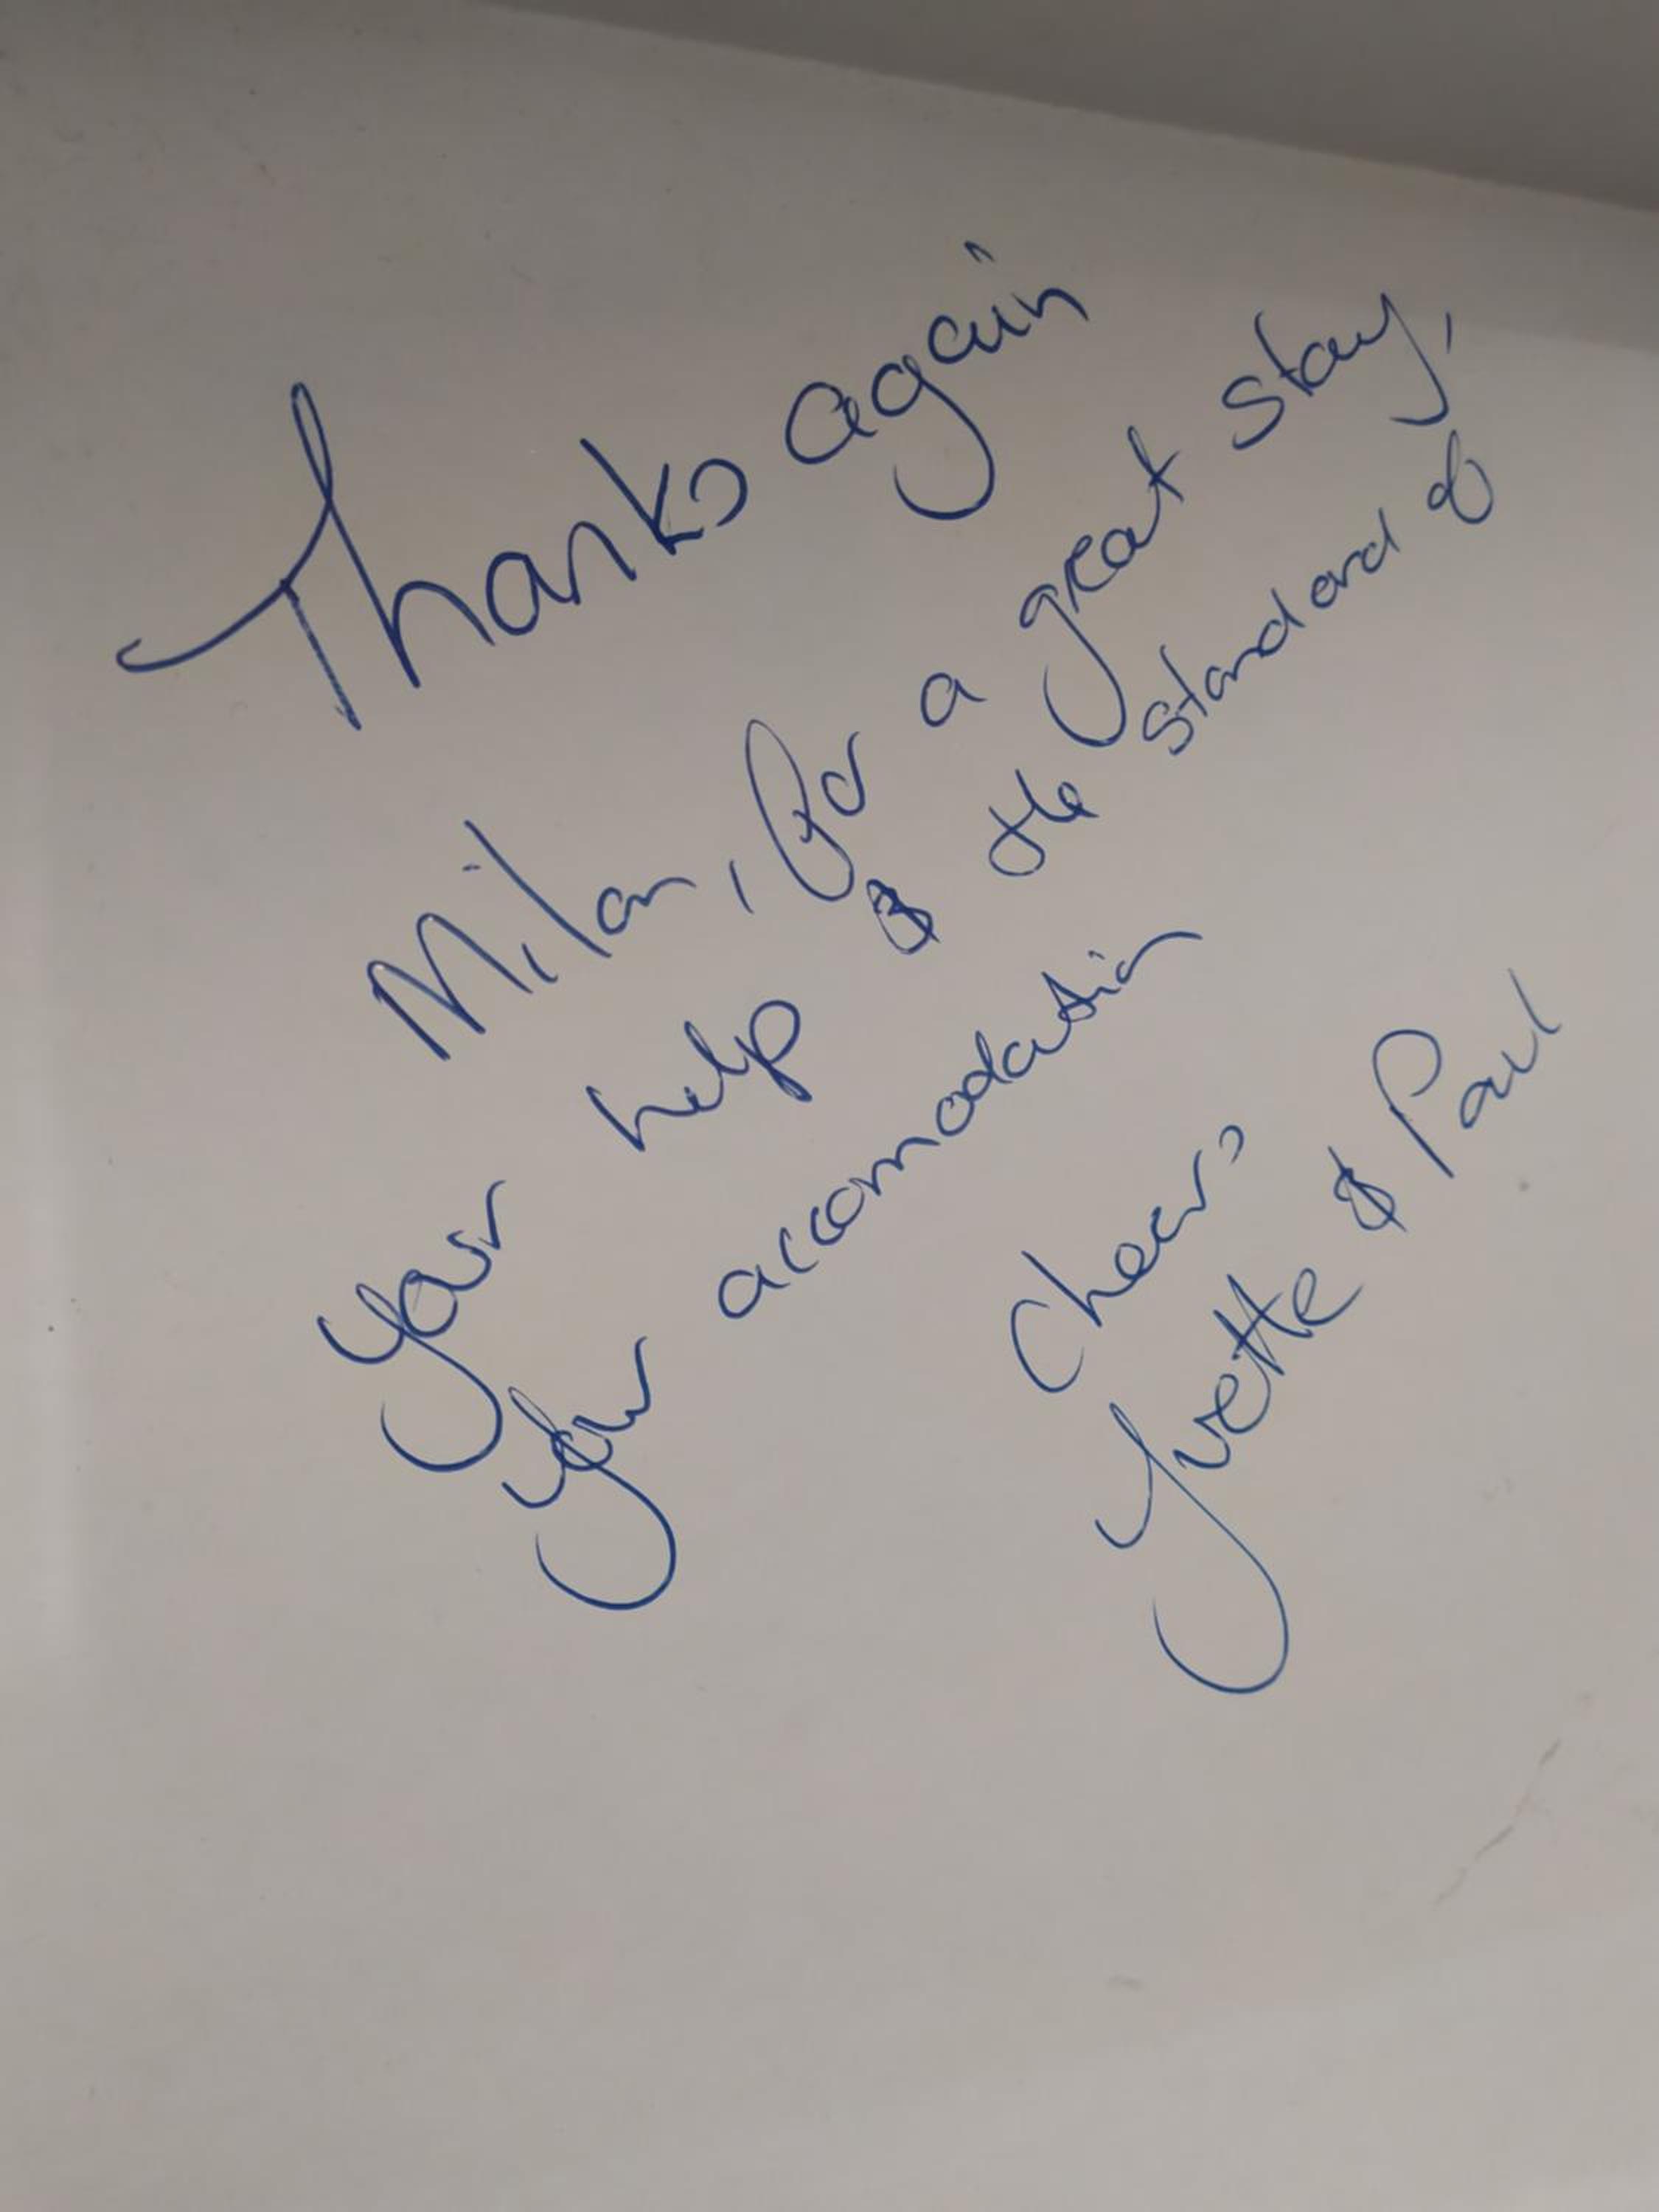 Thanks again
Milan, for a great stay,
Your help & the standard of
your accomodation
Cheers
Yvette & Paul